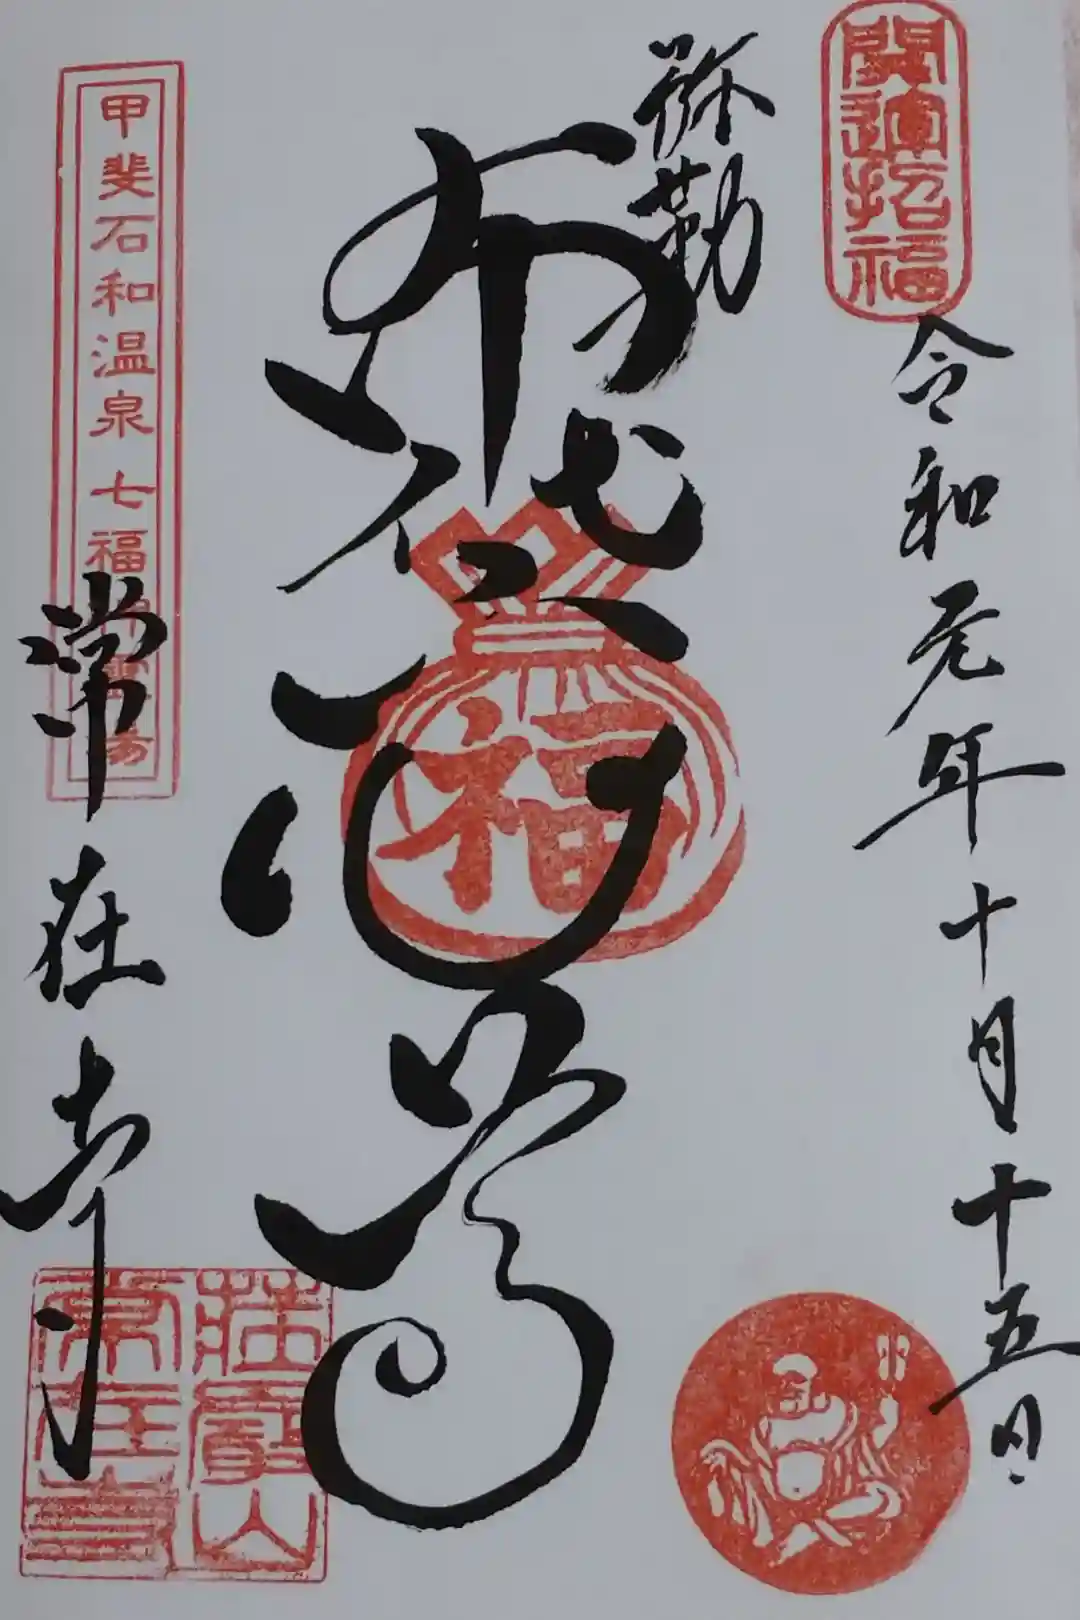 開運招福
令和元年十月十五日
弥勒
布袋尊
福
甲斐石和温泉七福神霊場
常在寺
常在寺